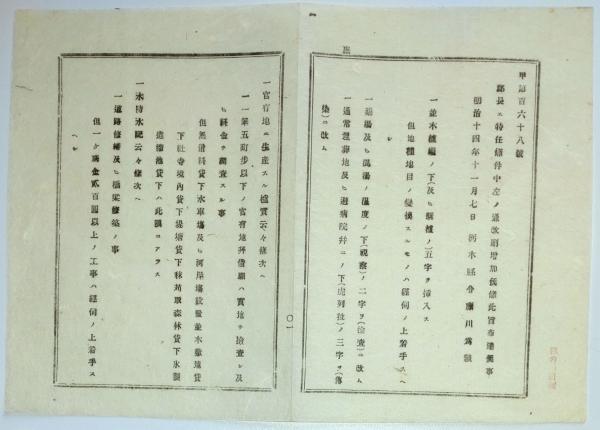 甲第百六十八號
郡長ニ特任條件中左ノ通改刪增加候條此旨布達候事
明治十四年十一月七日
一並木植繼ノ下(及ヒ
)五字ヲ挿入ス
但地種地目ノ變換スルモノハ經伺ノ上着手スヘシ
一鑛湯及ヒ温湯ノ温度ノ下(視察)ノ二字ヲ(檢査)ニ改ム
一通常埋葬地及ヒ避病院
ノ下(虎列拉)ノ三字ヲ(傳染)ニ改ム
〇一
一官有地ニ生産スル
云々條次ヘ
一一筆五町步以下ノ官有地拜借願ハ實地ヲ檢査シ及ヒ料金ヲ調査スル事
但無借料貸下水車場及ヒ河岸場
並木敷地貸下社寺境內貸下堤塘貸下秣苅取森林貸下氷製造溜池貸下ハ此限ニアラス
一水防水配云々條次ヘ
一道路修繕及ヒ橋梁修築ノ事
但一ケ所金貳百圓以上ノ工事ハ經伺ノ上着手スヘシ